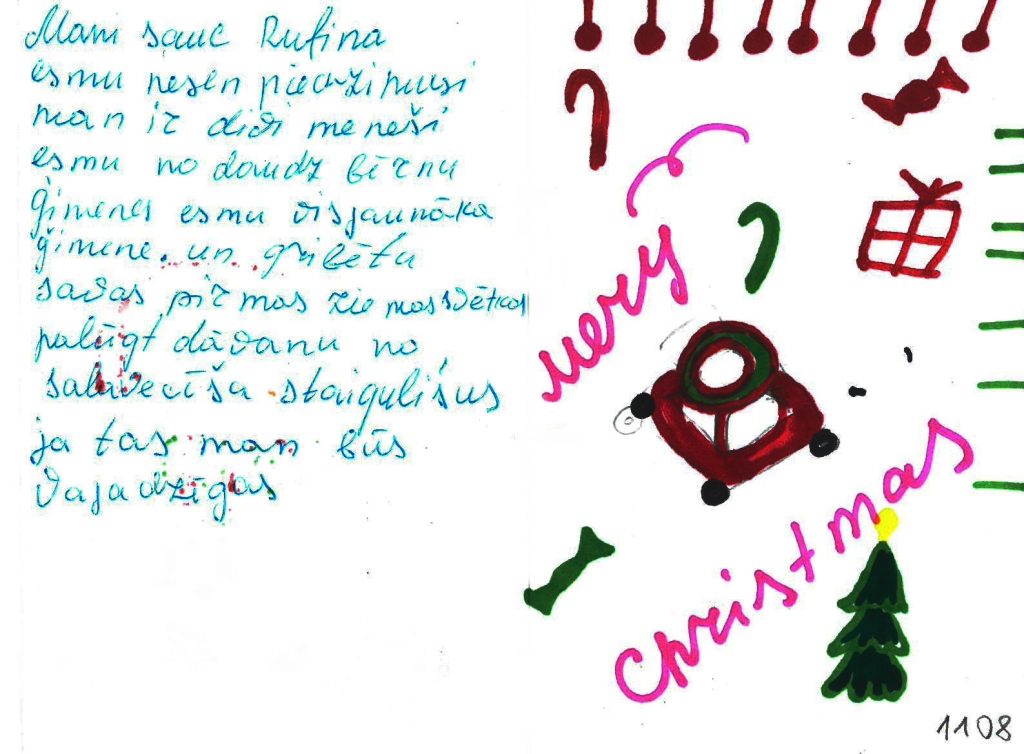 Mani sauc Rufina
esmu nesen piedzimusi
man ir divi meneši
esmu no daudz bērnu
ģimenes esmu visjaunāka
ģimene. un gribētu
savas pirmos ziemasvētkos
palūgt dāvanu no
salavecīša staigulišus
ja tas man būs
vajadzīgas
merry
christmas
1108